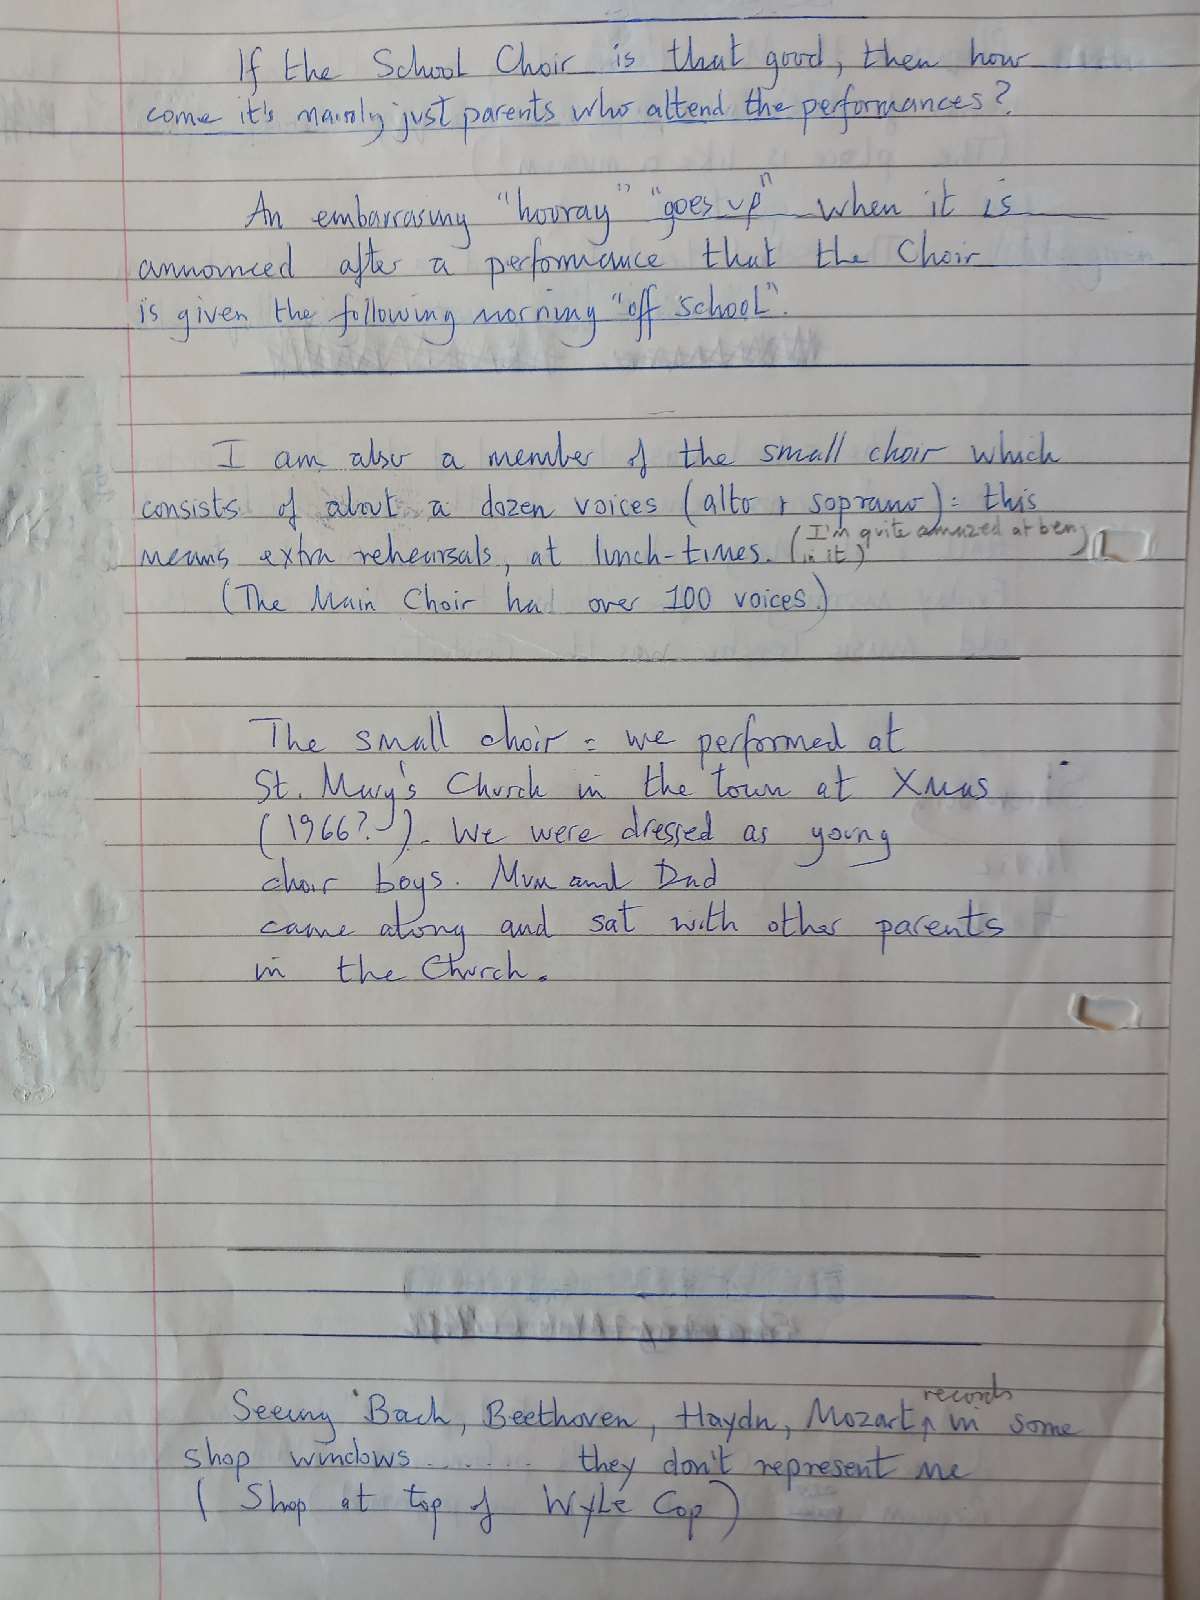 If the School Choir is that good, then how
come it's mainly just parents who attend the performances?
An embarrasing "hooray" "goes up" when it is
announced after a performance that the Choir
is given the following morning "off school".
I am also a member of the small choir which
consists of about a dozen voices (alto + soprano): this
means extra rehearsals, at lunch-times. (I'm quite amazed at being
in it)
(The Main Choir had over 100 voices.)
The small choir = we performed at
St. Mary's Church in the town at Xmas
(1966?). We were dressed as young
choir boys. Mum and Dad
came along and sat with other parents
in the Church.
records
Seeing Bach, Beethoven, Haydn, Mozart, in some
shop windows....... they don't represent me
(Shop at top of Wyle Cop)